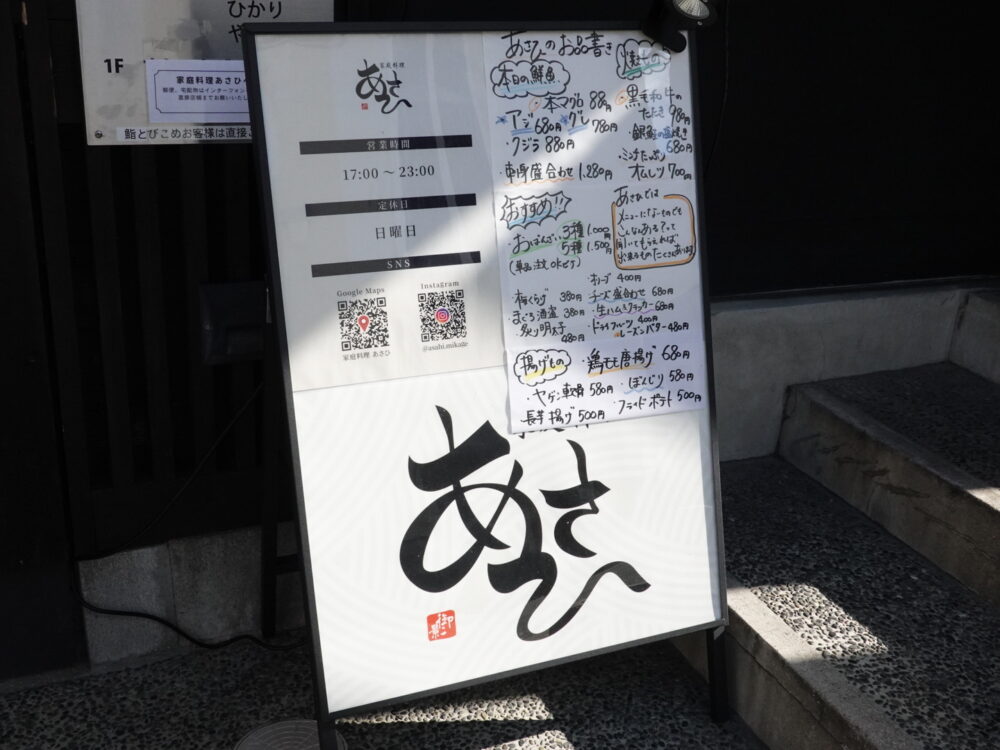 ひかり
や
1F
家庭料理あさひ
郵便、宅配物はインターフォン
直接店舗までお願いいたし
鮨とびこめお客様は直接こ
家庭料理
あさひ
営業時間
17:00 〜 23:00
定休日
日曜日
SNS
Google Maps
Instagram
家庭料理 あさひ
@asahi.mikage
あさひのお品書き
本日の鮮魚
本マグロ 88円
アジ 680円 グレ 780円
クジラ 880円
盛合わせ 1,280円
おすすめ!!
おばんざい 3種 1,000円
5種 1,500円
(単品注文OKピケ)
梅くらげ 380円
まぐろ酒盗 380円
炙り明太子 480円
焼もの
黒毛和牛の
たたき 980円
銀鮭の塩焼き
680円
ミンチたっぷり
オムレツ 700円
あさひでは
メニューにないものでも
こんなんある?って
聞いてもらえれば
出来るものたくさんあります
オリーブ 400円
チーズ盛合わせ 680円
生ハムとクラッカー 680円
ドライフルーツ 400円
レーズンバター 480円
揚げもの
鶏もも唐揚げ 680円
ヤゲン軟骨 580円
ぼんじり 580円
長芋揚げ 500円
フライドポテト 500円
あさひ
御影